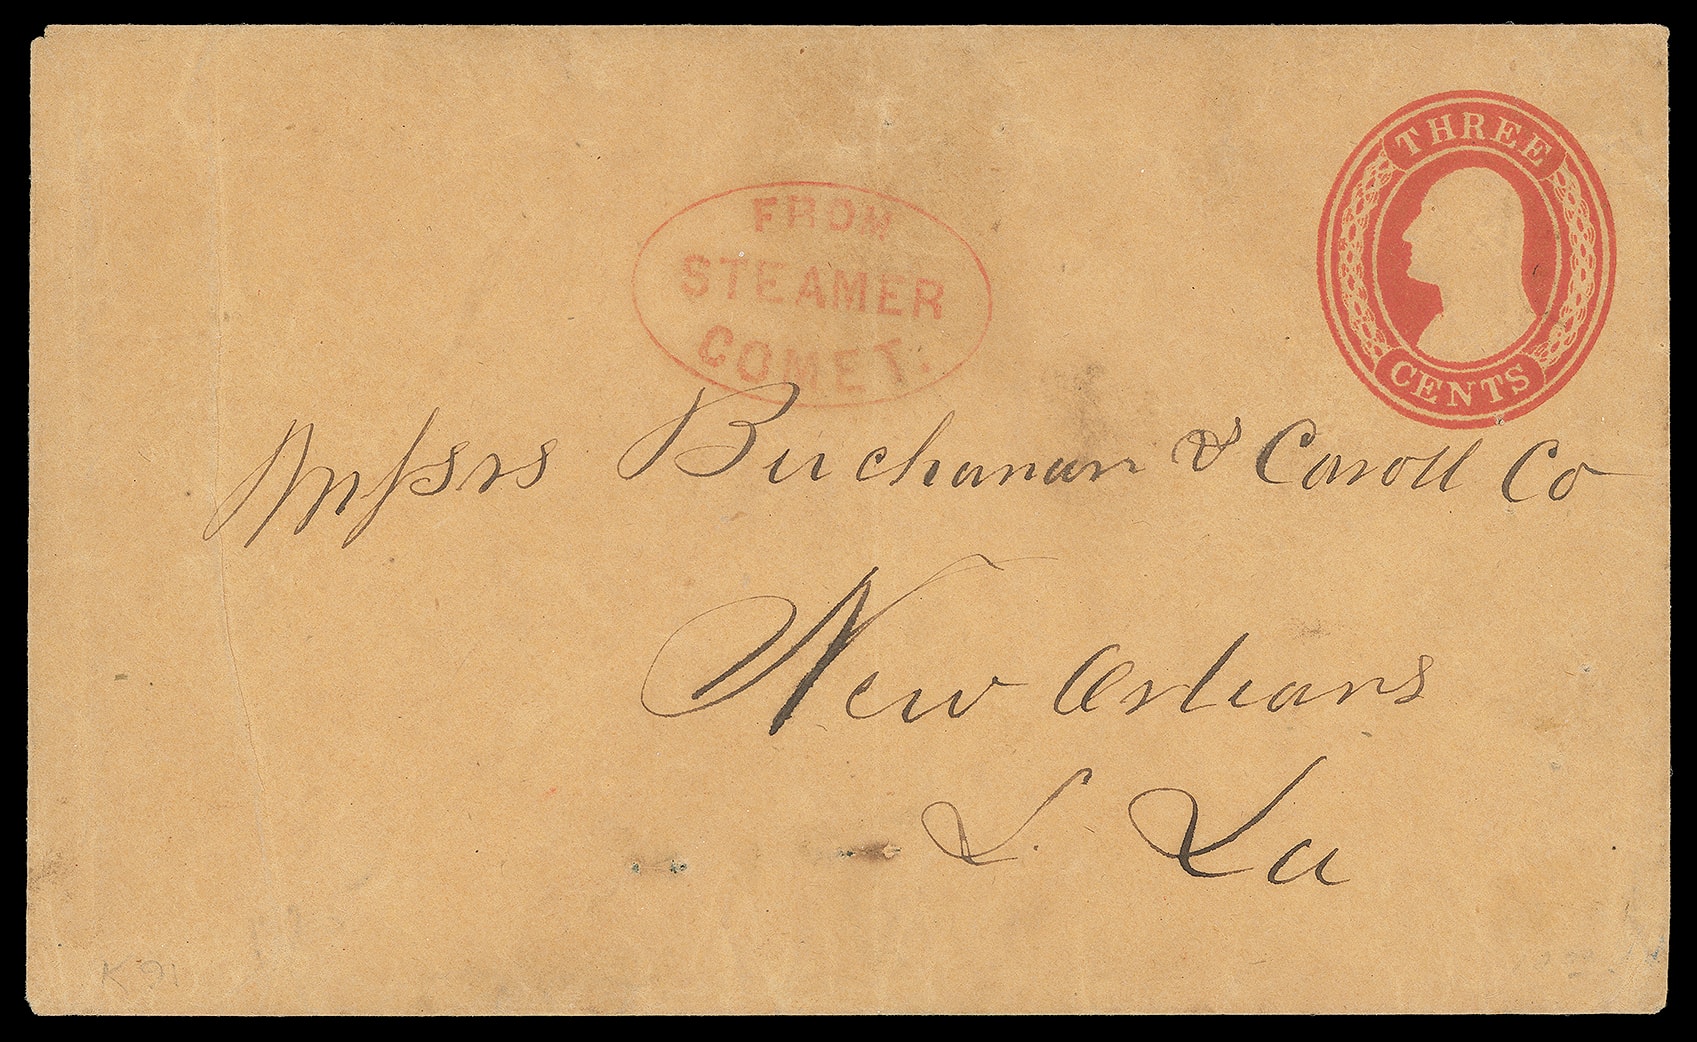 THREE
CENTS
FROM
STEAMER
COMET.
Messrs Buchanan & Caroll Co
New Orleans
L. La
K 91